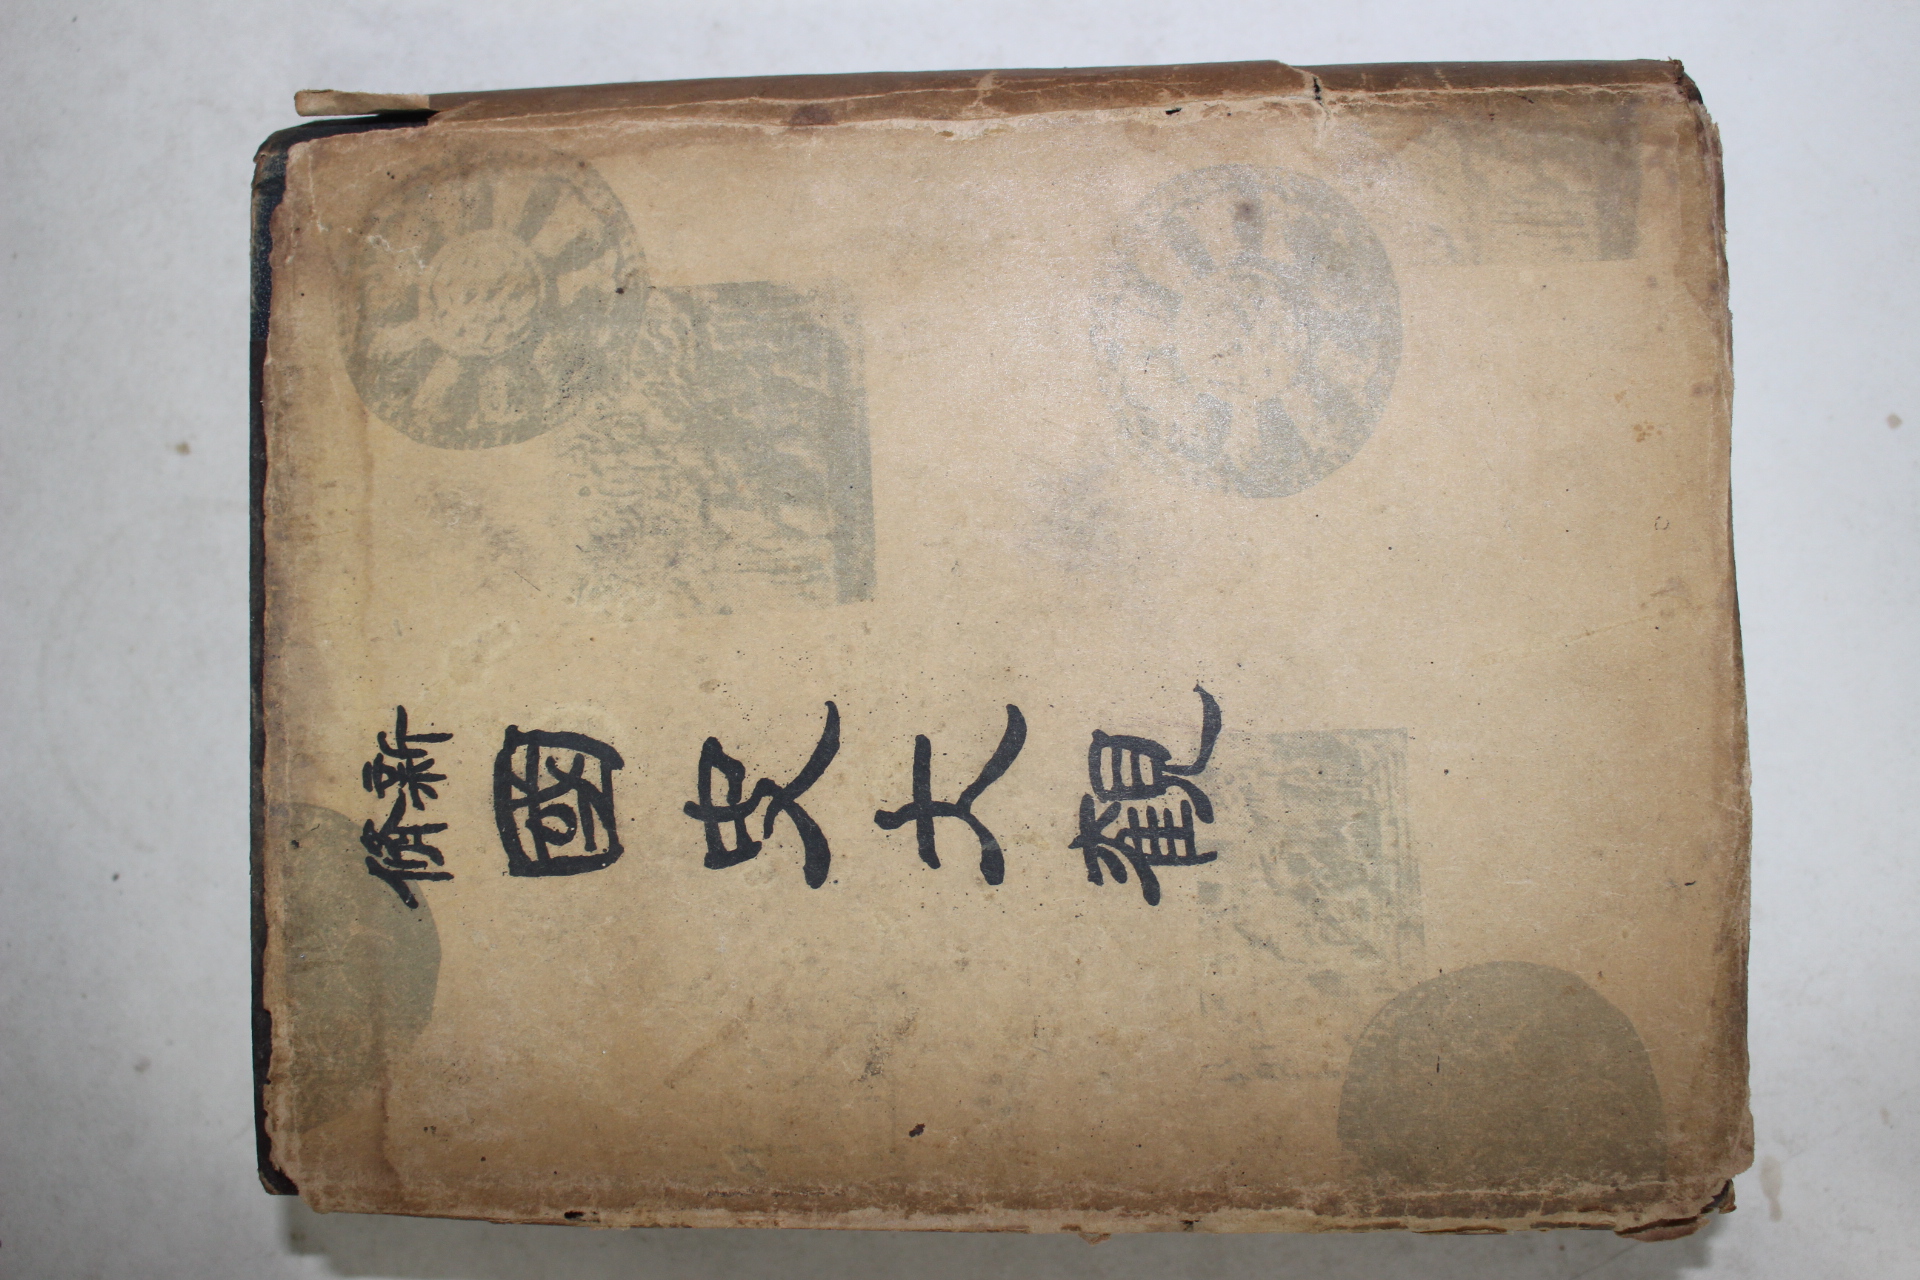 新修
國史大觀